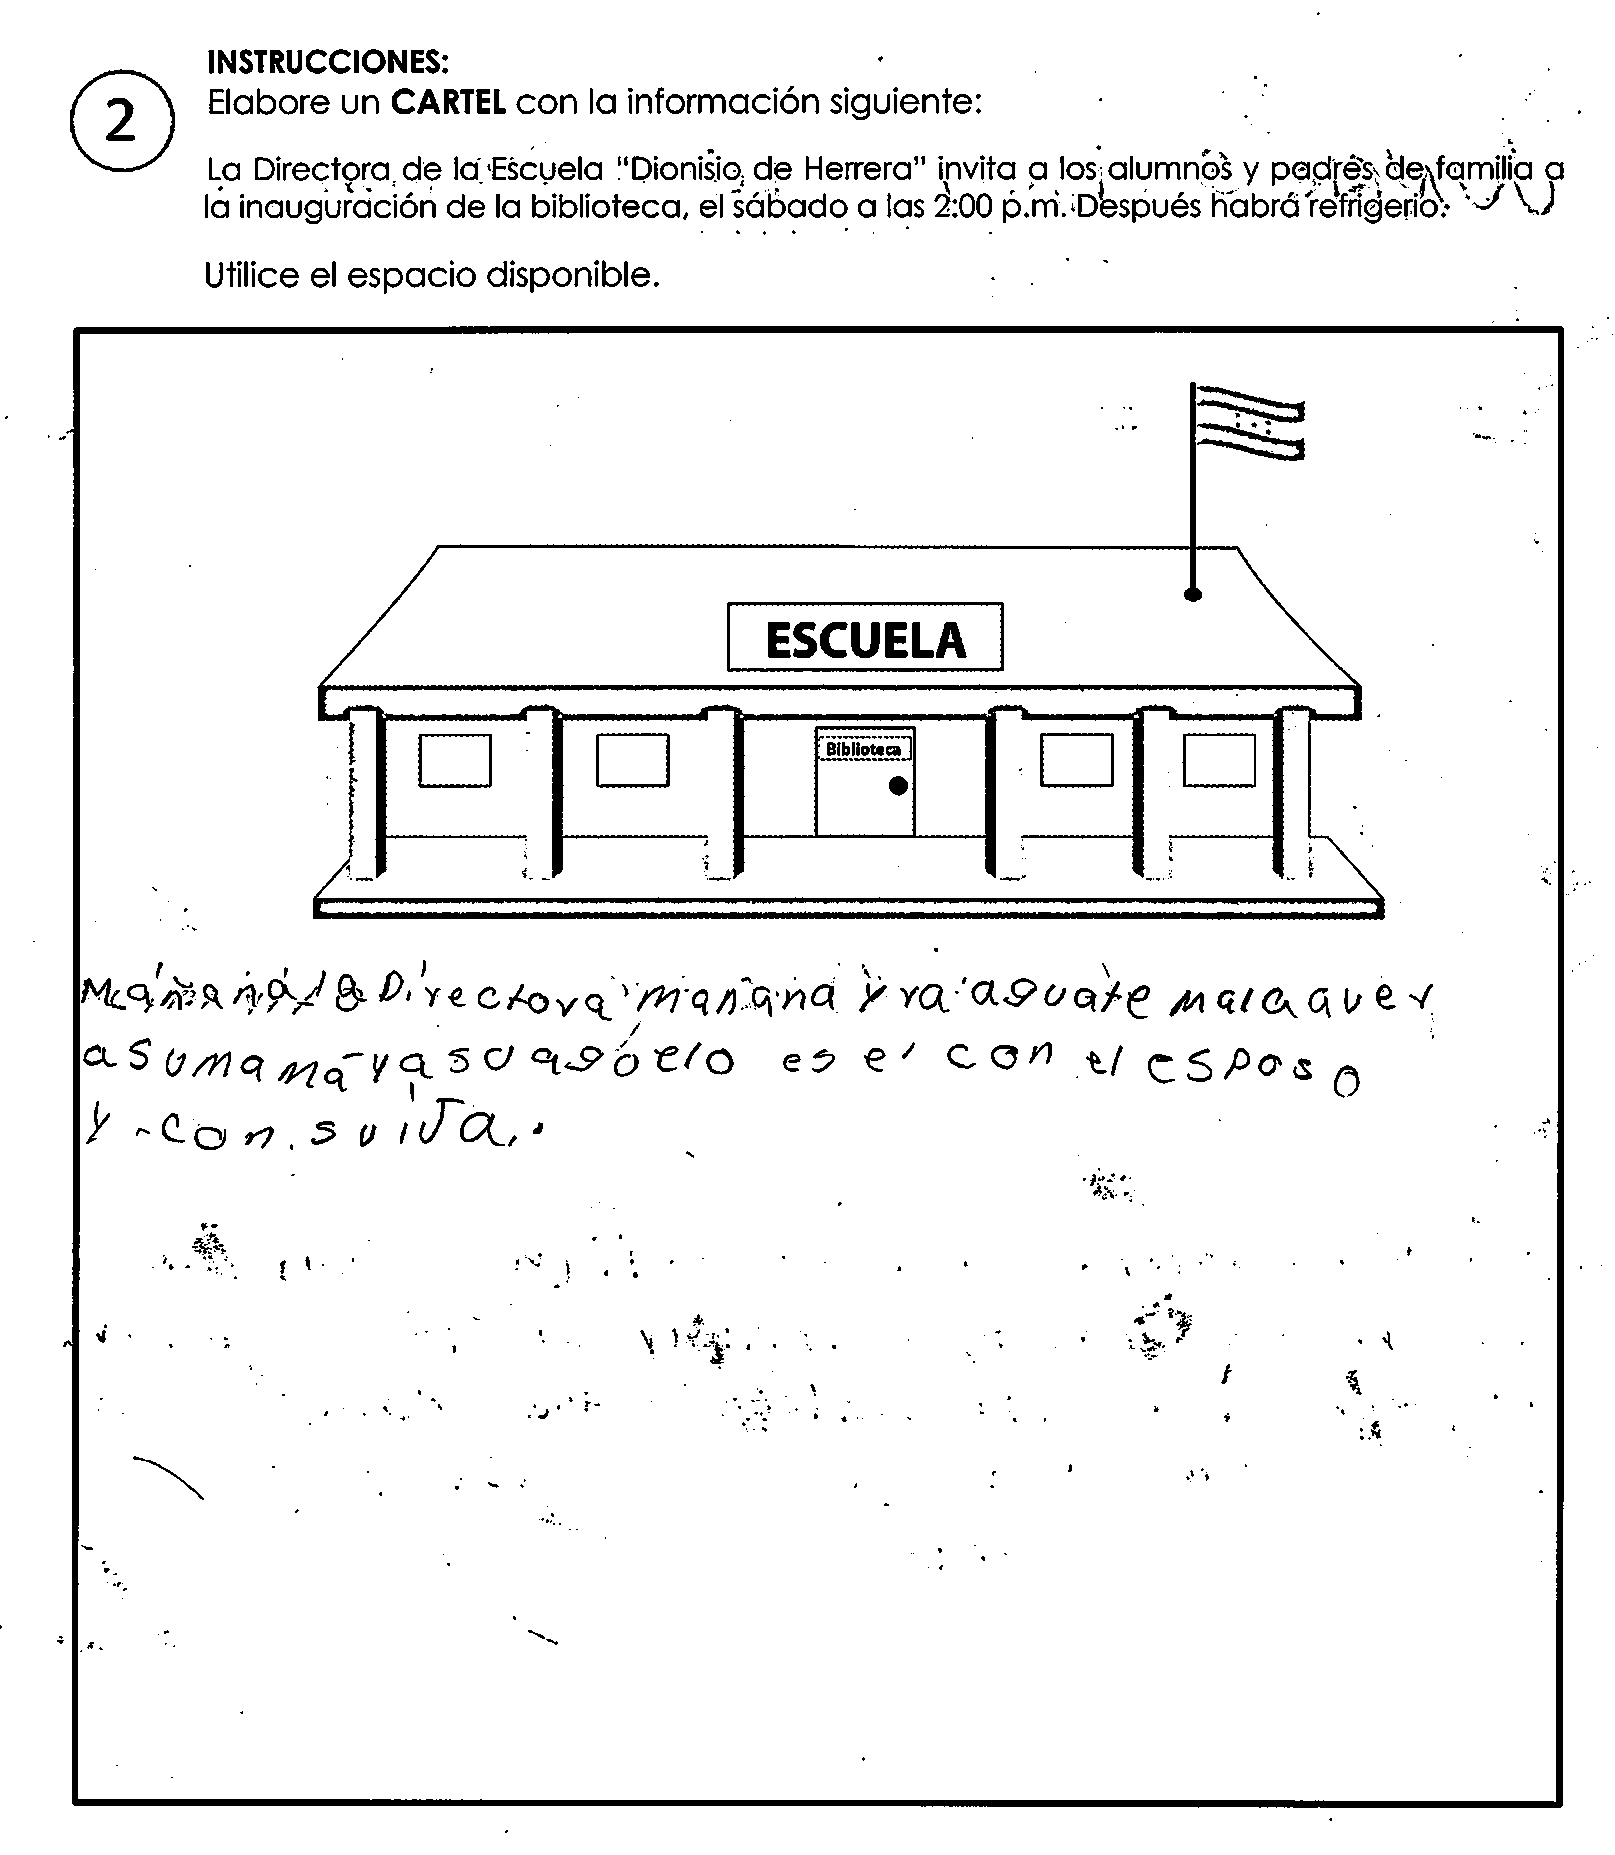 INSTRUCCIONES:
2
Elabore un CARTEL con la información siguiente:
La Directora de la Escuela "Dionisio de Herrera" invita a los alumnos y padres de familia a
la inauguración de la biblioteca, el sábado a las 2:00 p.m. Después habrá refrigerio.
Utilice el espacio disponible.
ESCUELA
Biblioteca
Directora mañana y ra aguate mala a ver
a su mama y a su aguelo es el con el esposo
y con suida.